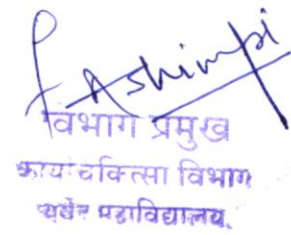 Ashimpi
विभाग प्रमुख
काय चिकित्सा विभाग
महाविद्यालय.